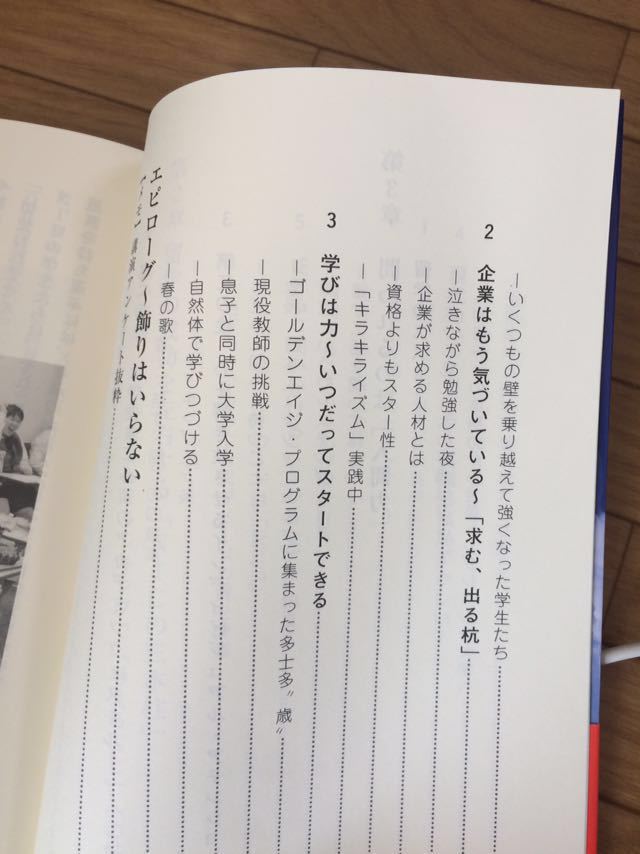 ―いくつもの壁を乗り越えて強くなった学生たち
2 企業はもう気づいている～「求む、出る杭」
―泣きながら勉強した夜
―企業が求める人材とは
―資格よりもスター性
―「キラキライズム」実践中
3 学びは力～いつだってスタートできる
―ゴールデンエイジ・プログラムに集まった多士多〝歳〟
―現役教師の挑戦
―息子と同時に大学入学
―自然体で学びつづける
―春の歌
エピローグ～飾りはいらない
講演アンケート抜粋